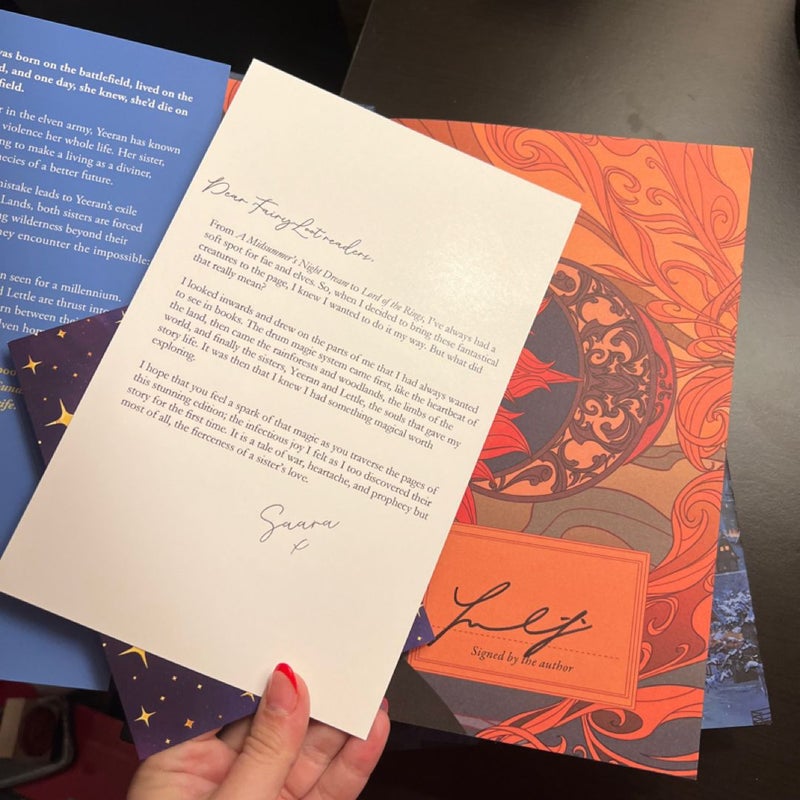 was born on the battlefield, lived on the
d, and one day, she knew, she'd die on
field.
r in the elven army, Yeeran has known
violence her whole life. Her sister,
ng to make a living as a diviner,
hecies of a better future.
mistake leads to Yeeran's exile
Lands, both sisters are forced
ng wilderness beyond their
hey encounter the impossible:
n seen for a millennium.
d Lettle are thrust into
rn between the
lven hop
Dear FairyLoot readers,
From A Midsummer's Night Dream to Lord of the Rings, I've always had a
soft spot for fae and elves. So, when I decided to bring these fantastical
creatures to the page, I knew I wanted to do it my way. But what did
that really mean?
I looked inwards and drew on the parts of me that I had always wanted
to see in books. The drum magic system came first, like the heartbeat of
the land, then came the rainforests and woodlands, the limbs of the
world, and finally the sisters, Yeeran and Lettle, the souls that gave my
story life. It was then that I knew I had something magical worth
exploring.
I hope that you feel a spark of that magic as you traverse the pages of
this stunning edition; the infectious joy I felt as I too discovered their
story for the first time. It is a tale of war, heartache, and prophecy but
most of all, the fierceness of a sister's love.
Saara
x
Signed by the author